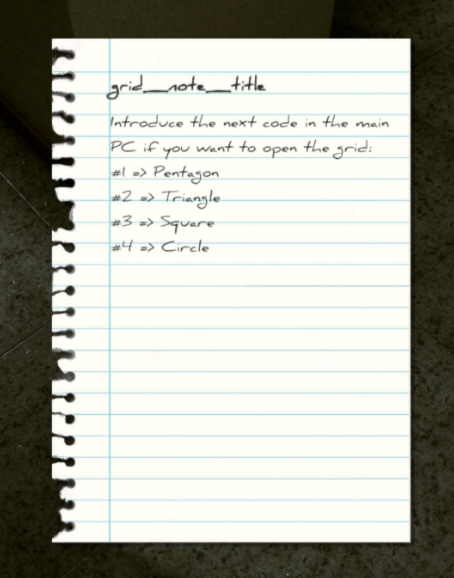 grid__note__title
Introduce the next code in the main
PC if you want to open the grid:
#1 => Pentagon
#2 => Triangle
#3 => Square
#4 => Circle